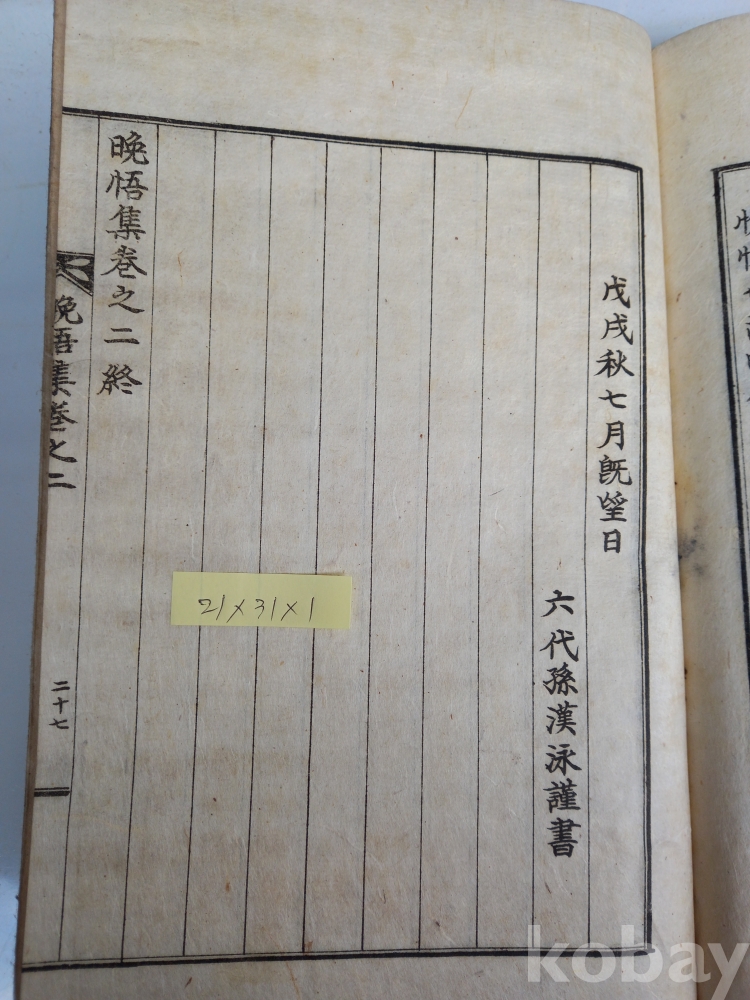 戊戌秋七月旣望日
六代孫漢泳謹書
晚悟集卷之二終
晚悟集卷之二
二十七
21×31×1
kobay